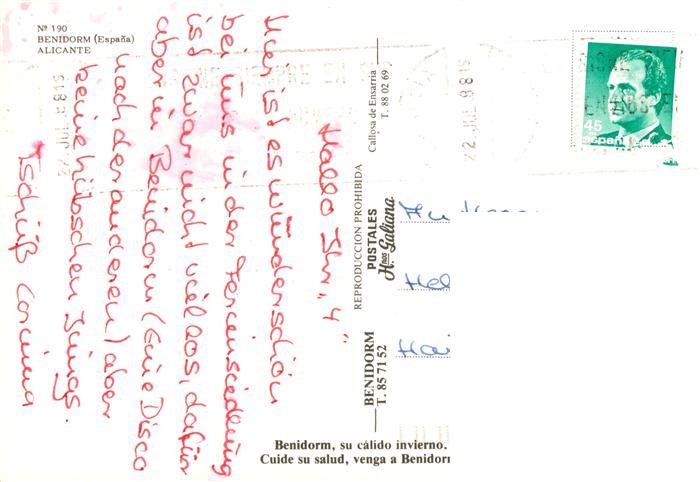 Nº 190
BENIDORM (España)
ALICANTE
Hallo Ihr „4"
Hier ist es wunderschön
bei uns in der Feriensiedlung
ist zwar nicht viel los, dafür
aber in Benidorm (Eine Disco
nach der anderen) aber
keine hübschen Jungs.
Tschüß Corinna
Callosa de Ensarria
T. 88 02 69
REPRODUCCION PROHIBIDA
POSTALES
Hnos Galiana
BENIDORM
T. 85 71 52
22 JUL 88 15
22 JUL 88 15
45
España
Benidorm, su cálido invierno.
Cuide su salud, venga a Benidorm